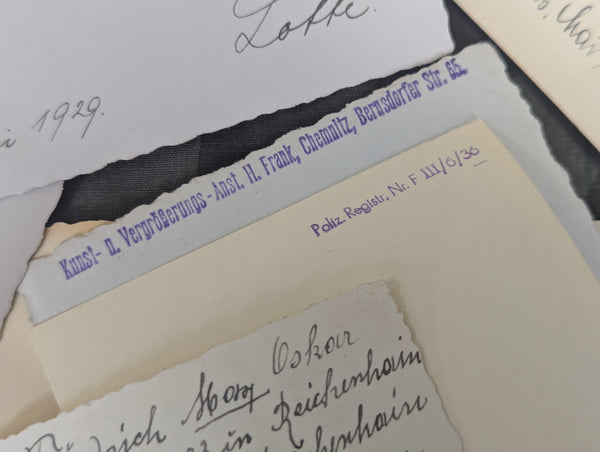 Lotte.
i 1929.
Kunst- u. Vergrößerungs-Anst. H. Frank, Chemnitz, Bernsdorfer Str. 65.
Poliz. Registr. Nr. F III/6/36
Max Oskar
in Reichenhain